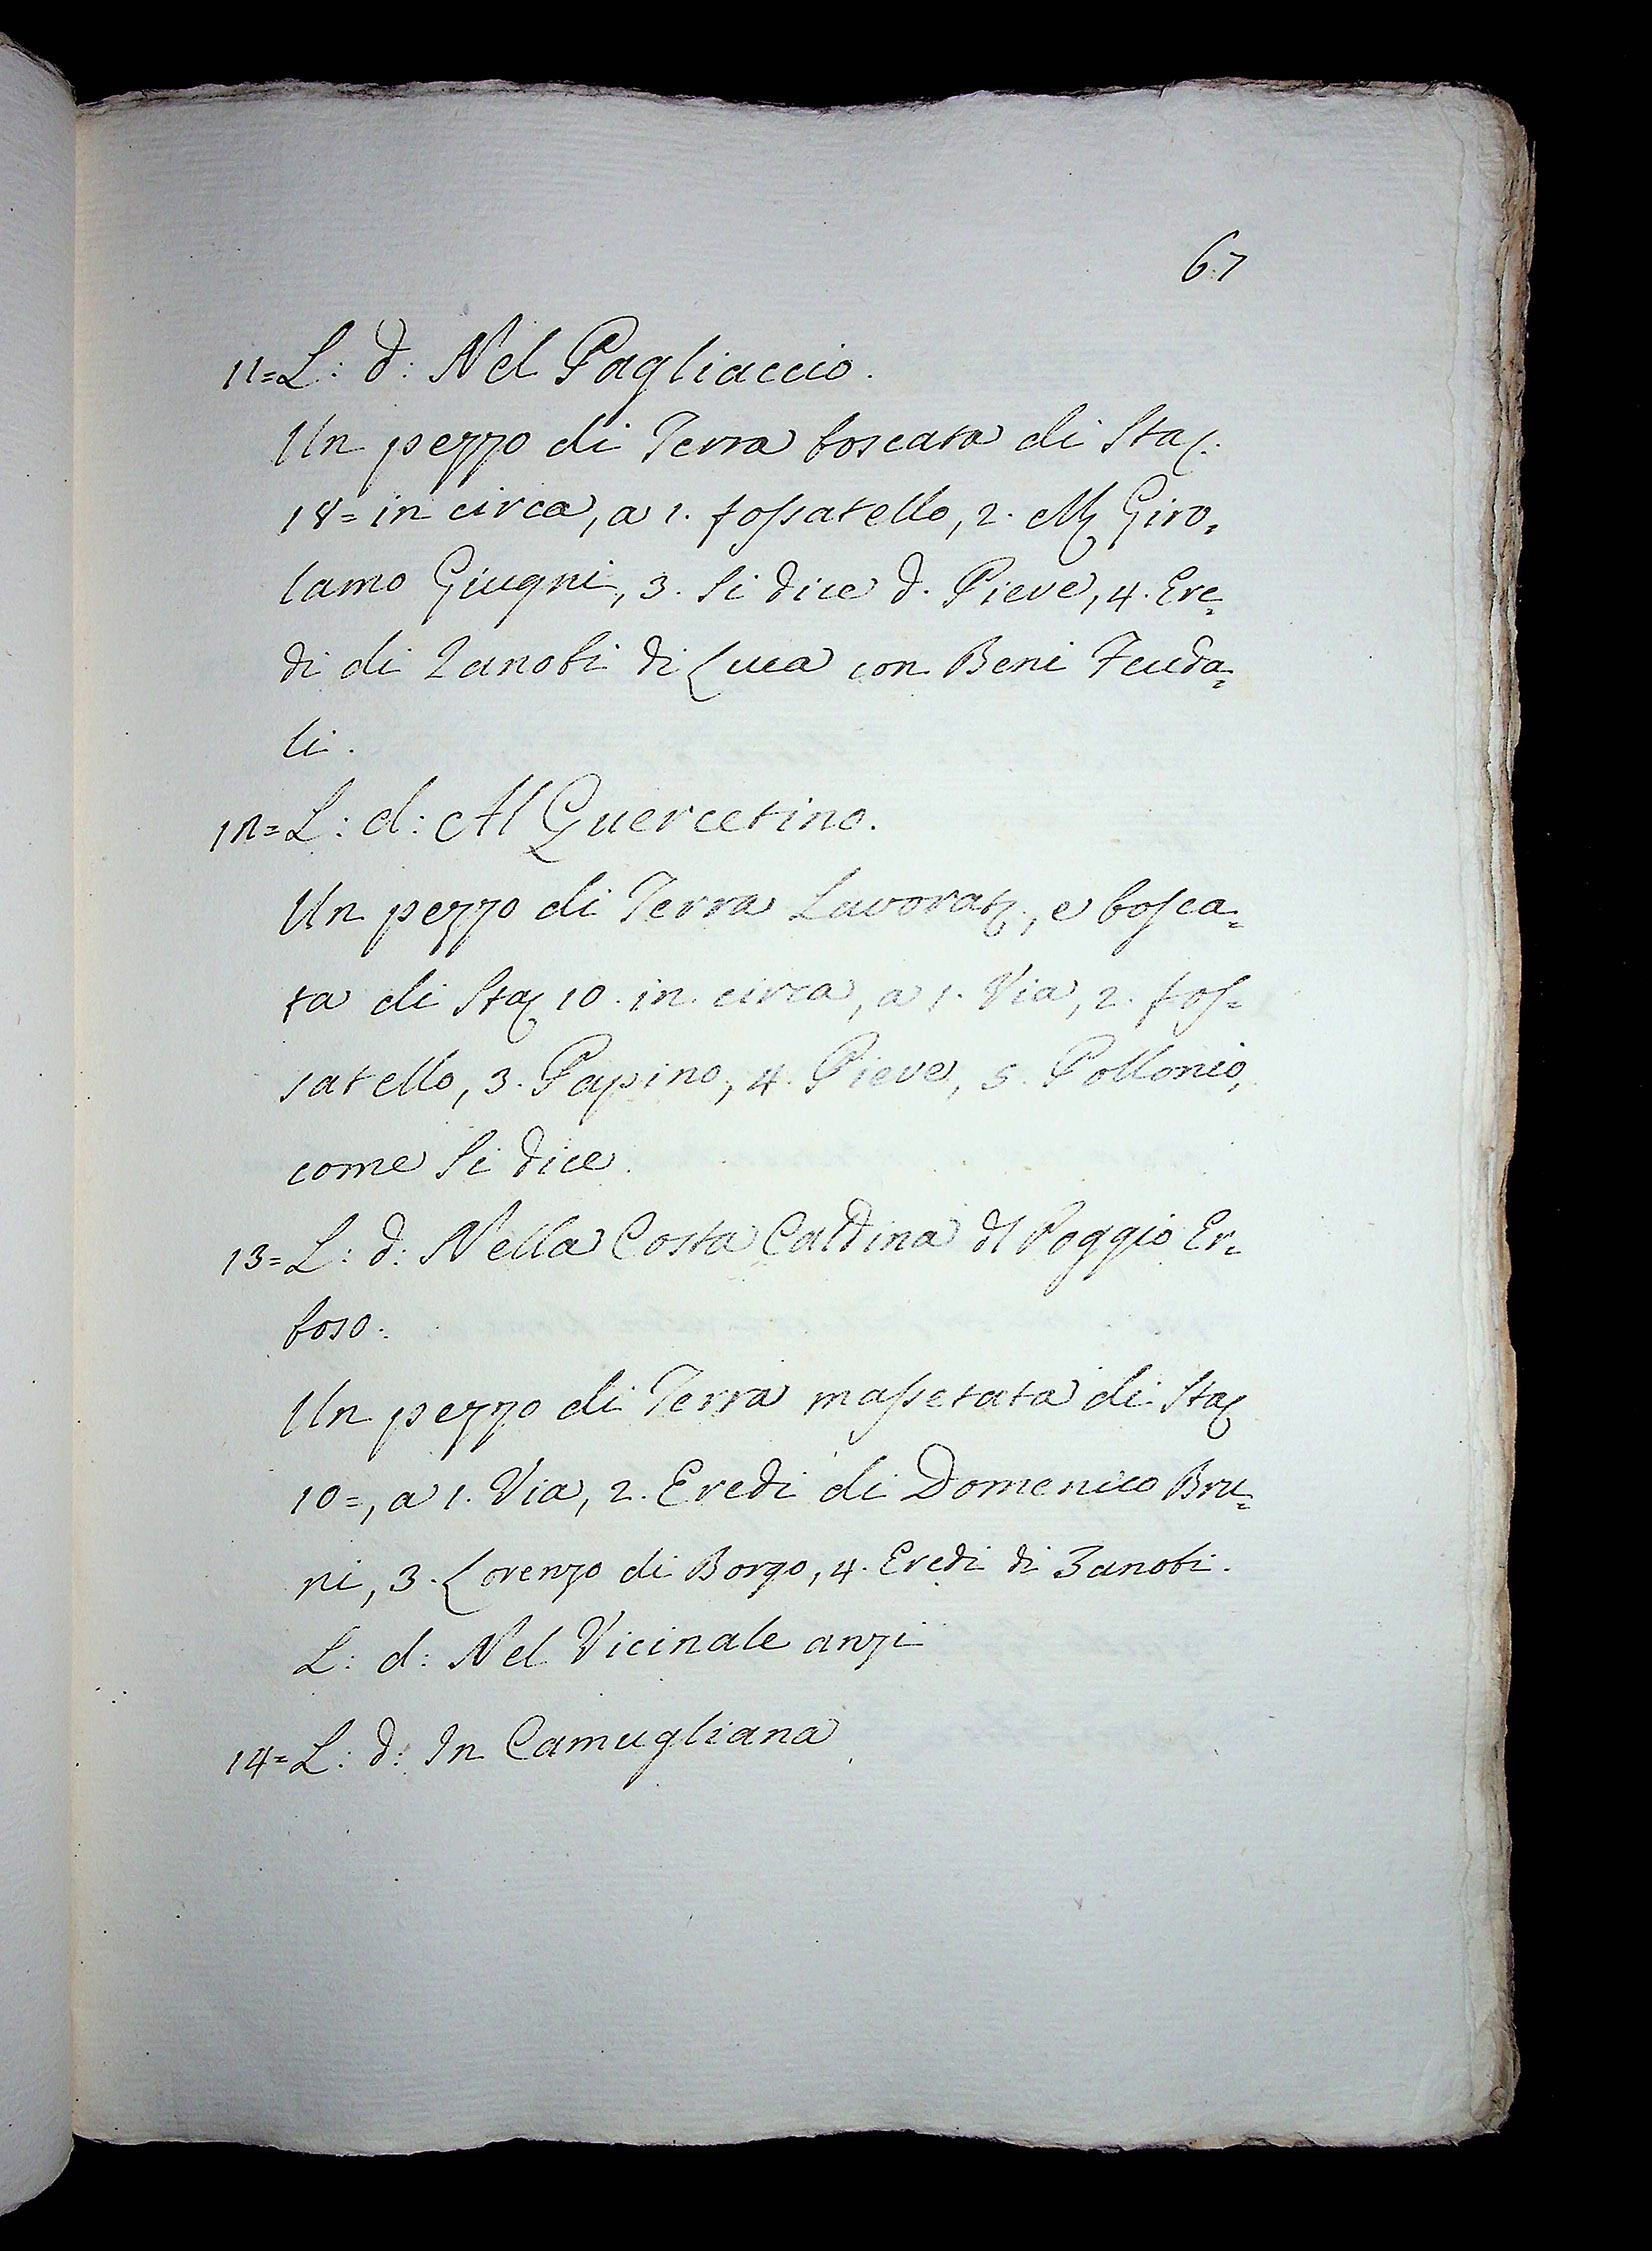 67
11= L: d: Nel Pagliaccio.
Un pezzo di Terra boscata di Sta:
18= in circa, a 1. fossatello, 2. M. Giro=
lamo Giugni, 3. si dice d. Pieve, 4. Ere=
di di Zanobi di Luca con Beni Feuda=
li.
12= L: d: Al Quercetino.
Un pezzo di Terra Lavorat:, e bosca=
ta di Sta: 10. in circa, a 1. Via, 2. fos=
satello, 3. Papino, 4. Pieve, 5. Pollonio,
come si dice.
13= L: d: Nella Costa Caldina dl Poggio Er=
boso.
Un pezzo di Terra massetata di Sta:
10=, a 1. Via, 2. Eredi di Domenico Bru=
ni, 3. Lorenzo di Borgo, 4. Eredi di Zanobi.
L: d: Nel Vicinale anzi
14= L: d: In Camugliana